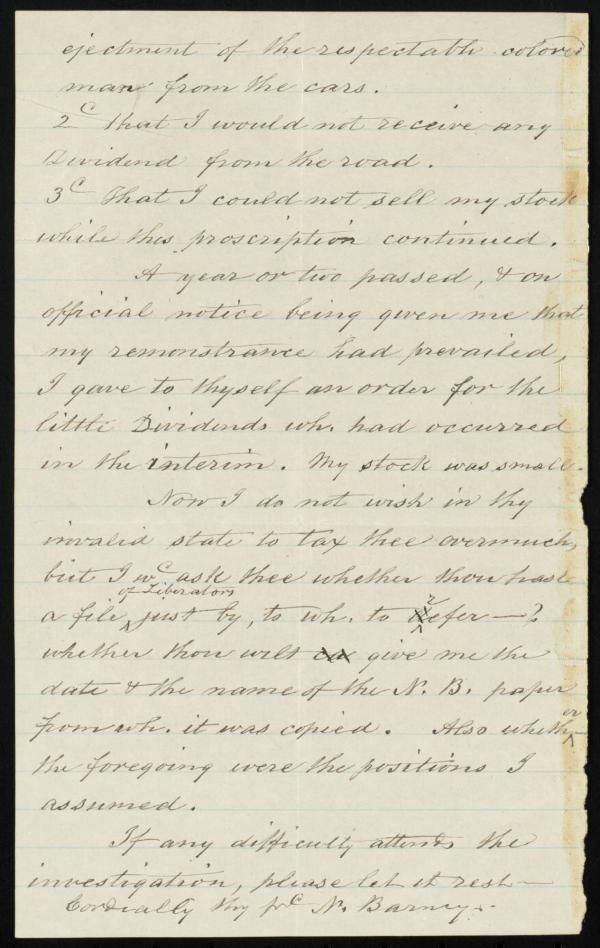 ejectment of the respectable colored
man from the cars.
2d That I would not receive any
Dividend from the road.
3d That I could not sell my stock
while this proscription continued.
A year or two passed, & on
official notice being given me that
my remonstrance had prevailed,
I gave to thyself an order for the
little Dividends wh. had occurred
in the interim. My stock was small.
Now I do not wish in thy
invalid state to tax thee overmuch,
but I wd ask thee whether thou hast
a file of Liberators just by, to wh. to refer—?
whether thou wilt give me the
date & the name of the N. B. paper
from wh. it was copied. Also whether
the foregoing were the positions I
assumed.
If any difficulty attends the
investigation, please let it rest—
Cordially thy frd N. Barney.